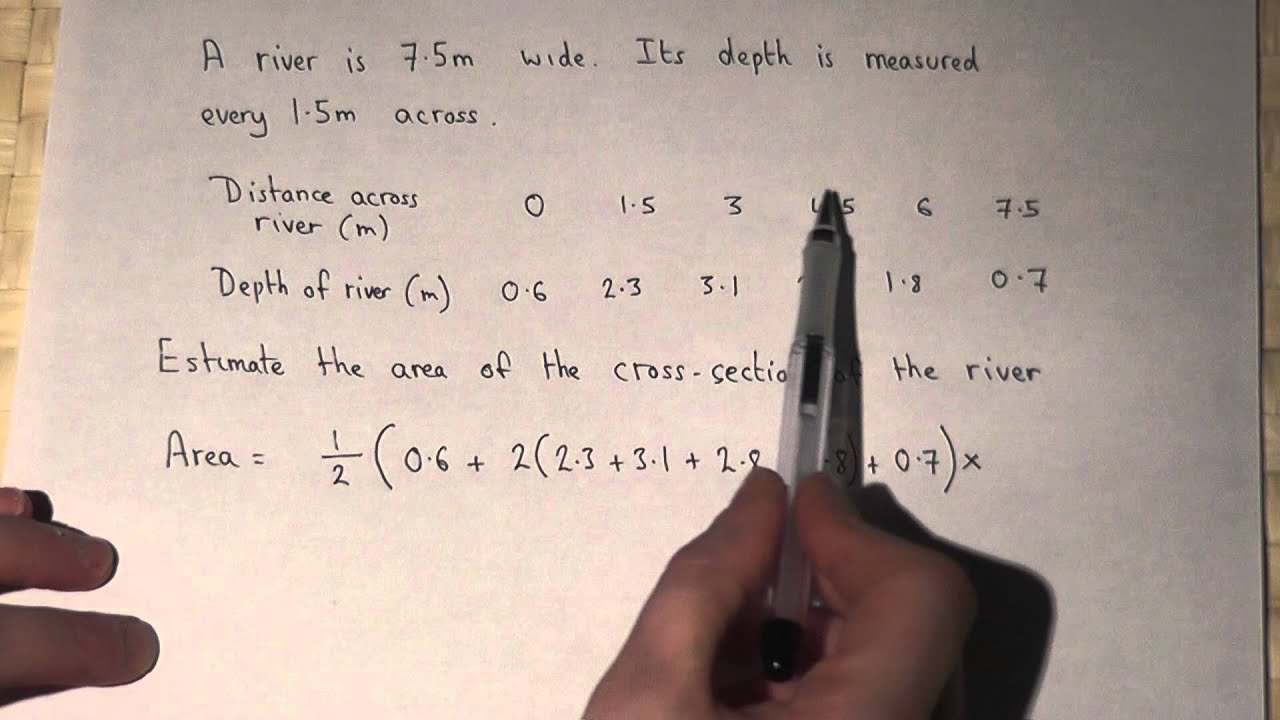 A river is 7.5m wide. Its depth is measured
every 1.5m across.
Distance across
river (m) 0 1.5 3 6 7.5
Depth of river (m) 0.6 2.3 3.1 1.8 0.7
Estimate the area of the cross-section of the river
Area = 1/2 (0.6 + 2(2.3 + 3.1 + 2.8 .8) + 0.7) ×